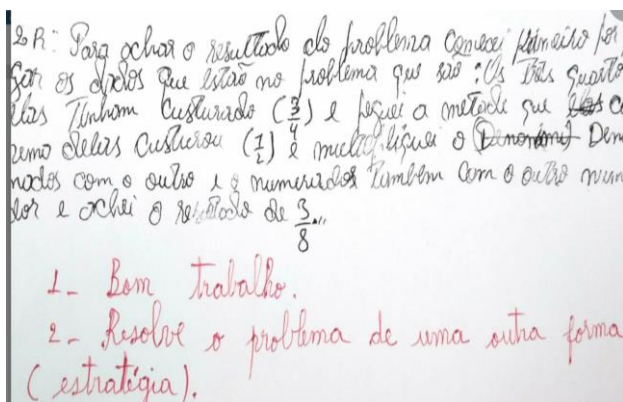 2R: Para achar o resultado do problema comecei primeiro por
os dados que estão no problema que são: Os três quarto
elas Tinham Custurado (3/4) e peguei a metade que
delas Custurou (1/2) e multipliquei o Den
com o outro e o numerador também com o outro num
dor e achei o resultado de 3/8...
1- Bom trabalho.
2- Resolve o problema de uma outra forma
(estratégia).